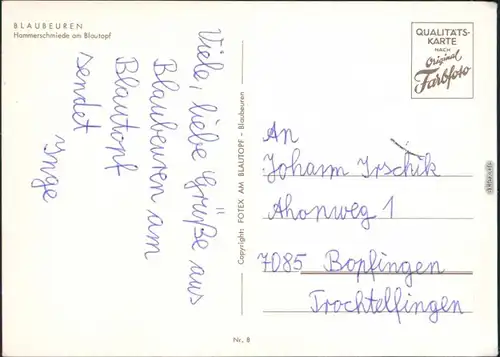 BLAUBEUREN
Hammerschmiede am Blautopf
Viele, liebe Grüße aus
Blaubeuren am
Blautopf
sendet
Inge
Copyright: FOTEX AM BLAUTOPF - Blaubeuren
QUALITÄTS-
KARTE
NACH
Original
Farbfoto
An
Johann Irschik
Ahornweg 1
7085 Bopfingen
Trochtelfingen
Nr. 8